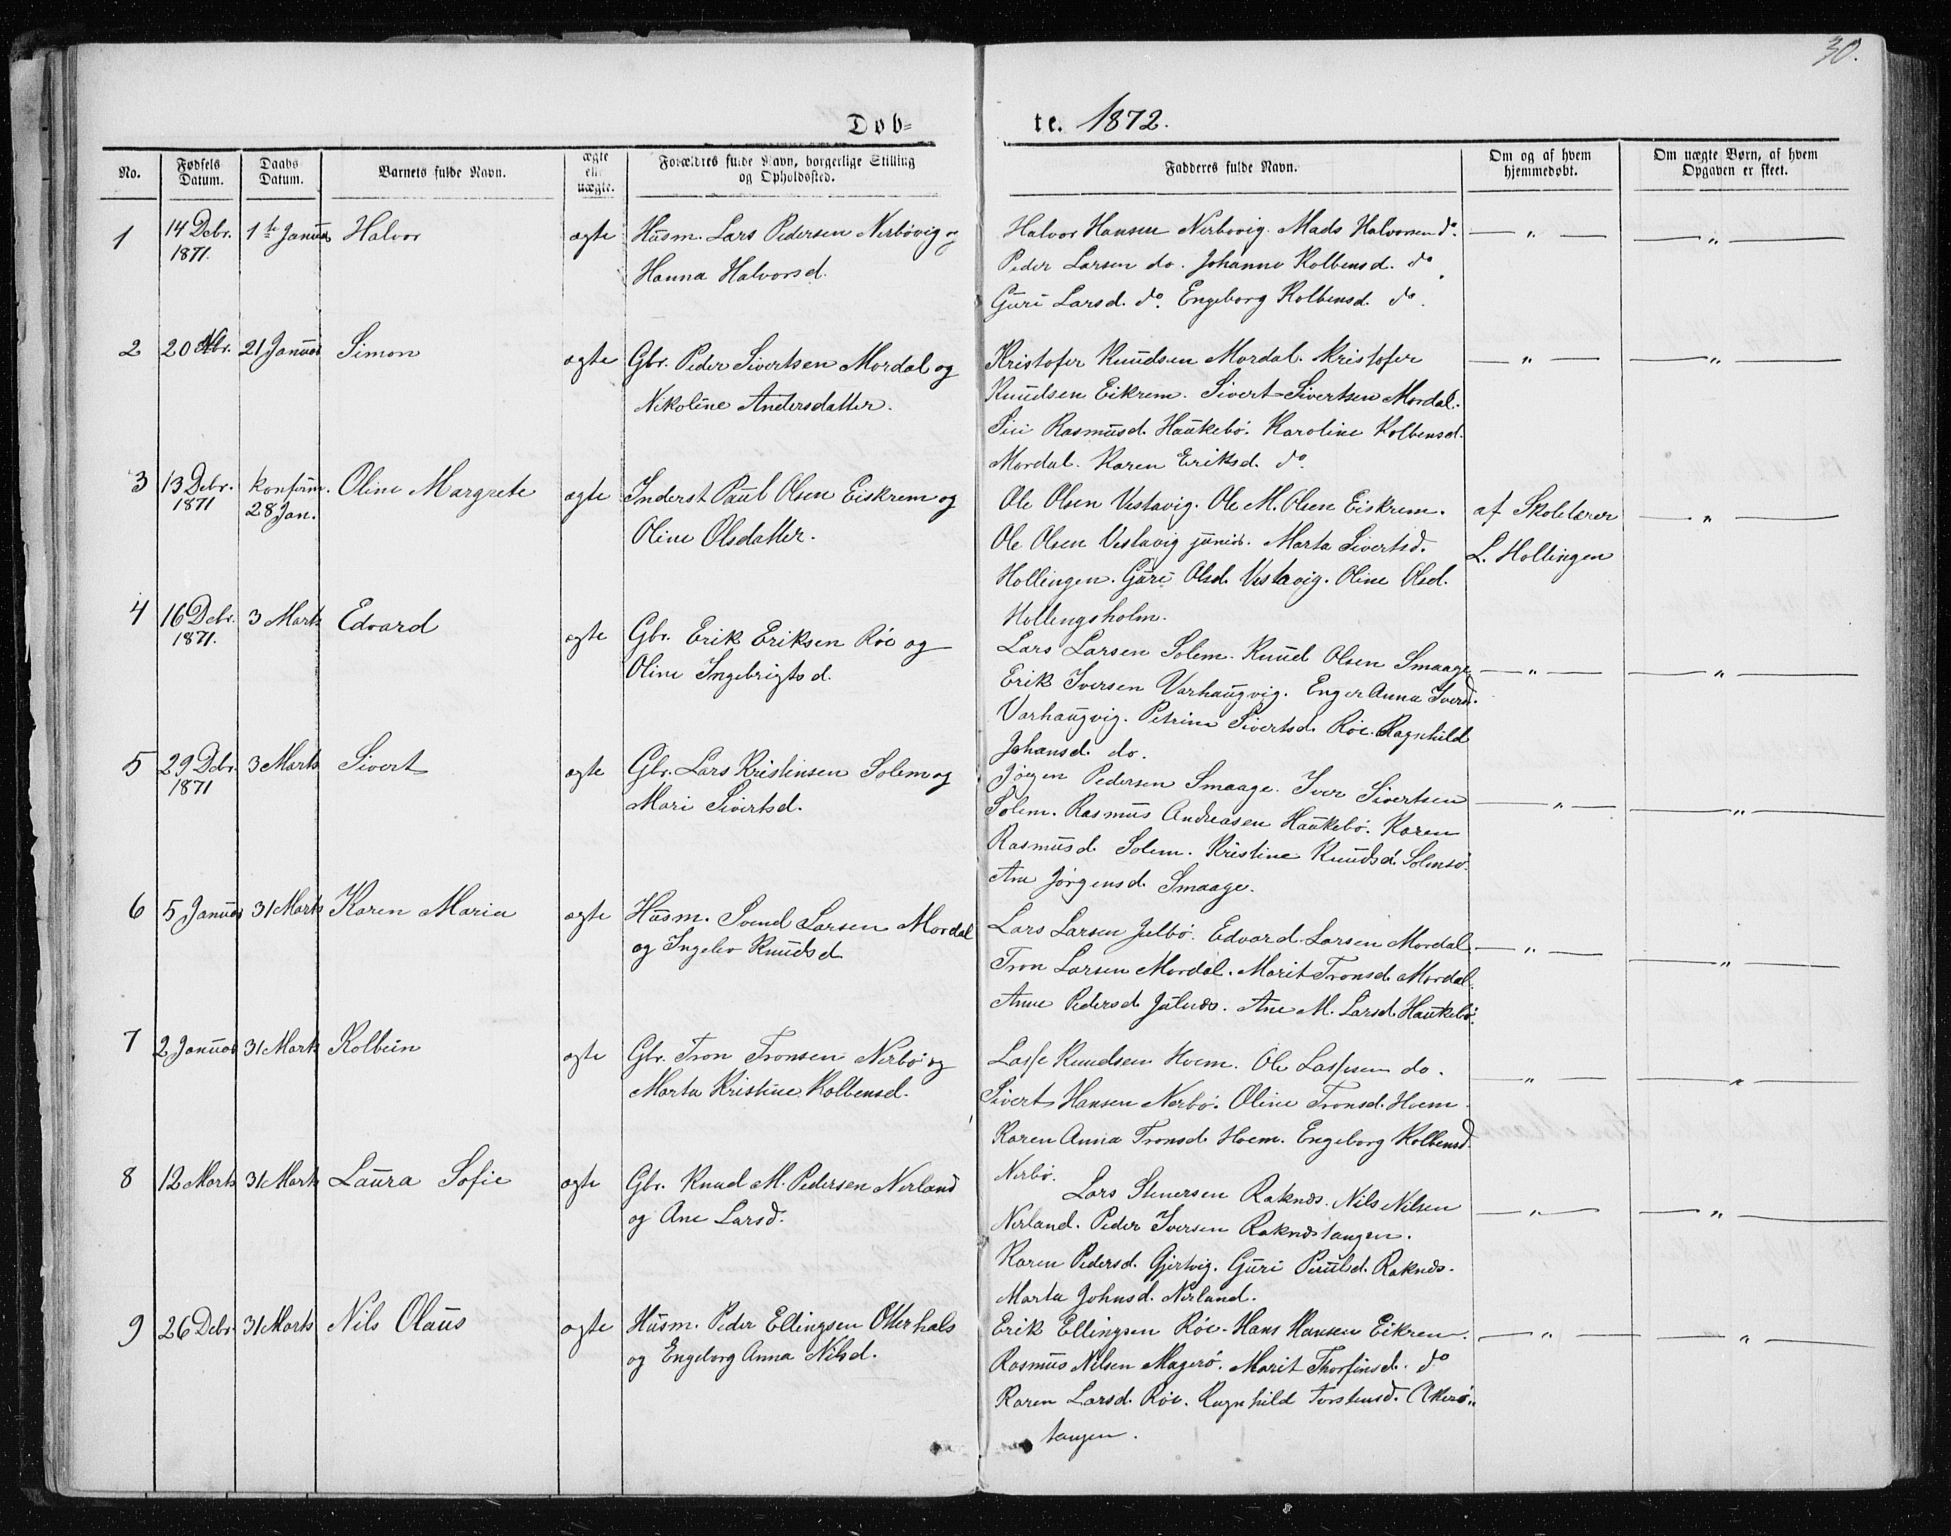 30.
Døb=
te. 1872.
No.
Fødsels Datum.
Daabs Datum.
Barnets fulde Navn.
ægte ell. uægte.
Forældres fulde Navn, borgerlige Stilling og Opholdssted.
Fadderes fulde Navn.
Om og af hvem hjemmedøbt.
Om uægte Børn, af hvem Opgaven er skeet.
1
14 Debr. 1871.
1te Januar
Halvor
ægte
Husm. Lars Pedersen Nerbøvig og
Hanna Halvorsd.
Halvor Hansen Nerbøvig. Mads Halvorsen do.
Peder Larsen do. Johanne Kolbensd. do
Guri Larsd. do. Engeborg Kolbensd. do.
— „ —
— „ —
2
20 Nbr.
21 Januar
Simon
ægte
Gbr. Peder Sivertsen Mordal og
Nikoline Andersdatter.
Kristofer Knudsen Mordal. Kristofer
Knudsen Eikrem. Sivert Sivertsen Mordal.
Siri Rasmusd. Haukebø. Karoline Kolbensd.
Mordal. Karen Eriksd. do.
— „ —
— „ —
3
13 Debr. 1871
konfirm. 28 Jan.
Oline Margrete
ægte
Inderst Paul Olsen Eiskrem og
Oline Olsdatter.
Ole Olsen Vestavig. Ole M. Olsen Eiskrem.
Ole Olsen Vestavig junior. Marta Sivertsd.
Hollingen. Guri Olsd. Vestavig. Oline Olsd.
Hollingsholm.
af Skolelærer
L. Hollingen
— „ —
4
16 Debr. 1871.
3 Marts
Edvard
ægte
Gbr. Erik Eriksen Röe og
Oline Ingebrigtsd.
Lars Larsen Solem. Knud Olsen Smaage
Erik Iversen Varhaugvig. Enger Anna Iversd.
Varhaugvig. Petrine Sivertsd. Röe. Ragnhild
Johansd. do.
— „ —
— „ —
5
29 Debr. 1871
3 Marts
Sivert
ægte
Gbr. Lars Kristensen Solem og
Mari Sivertsd.
Jörgen Pedersen Smaage. Iver Sivertsen
Solem. Rasmus Andreasen Haukebø. Karen
Rasmusd. Solem. Kristine Knudsd. Solemsö.
Ane Jörgensd. Smaage.
— „ —
— „ —
6
5 Januar
31 Marts
Karen Maria
ægte
Husm. Svend Larsen Mordal
og Ingelev Knudsd.
Lars Larsen Julbø. Edvard Larsen Mordal
Tron Larsen Mordal. Marit Tronsd. Mordal.
Anne Pedersd. Julnæs. Ane M. Larsd. Haukebø.
— „ —
— „ —
7
2 Januar
31 Marts
Kolbein
ægte
Gbr. Tron Tronsen Nerbø og
Marta Kristine Kolbensd.
Lasse Knudsen Hoem. Ole Lassesen do.
Sivert Hansen Nerbø. Oline Tronsd. Hoem.
Karen Anna Tronsd. Hoem. Engeborg Kolbensd.
Nerbø.
— „ —
— „ —
8
12 Marts
31 Marts
Laura Sofie
ægte
Gbr. Knud M. Pedersen Nerland
og Ane Larsd.
Lars Stenersen Raknæs. Nils Nilsen
Nerland. Peder Iversen Raknæstangen.
Karen Pedersd. Gjertvig. Guri Paulsd. Raknæs.
Marta Johnsd. Nerland.
— „ —
— „ —
9
26 Debr.
31 Marts
Nils Olaus
ægte
Husm. Peder Ellingsen Otterhals
og Engeborg Anna Nilsd.
Erik Ellingsen Röe. Hans Hansen Eikrem.
Rasmus Nilsen Magerö. Marit Thorfinsd. do
Karen Larsd. Röe. Ragnhild Torstensd. Akerö-
tangen.
— „ —
— „ —